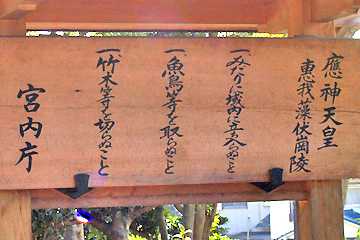 應神天皇
惠我藻伏崗陵
一みだりに域内に立入らぬこと
一魚鳥等を取らぬこと
一竹木等を切らぬこと
宮内庁